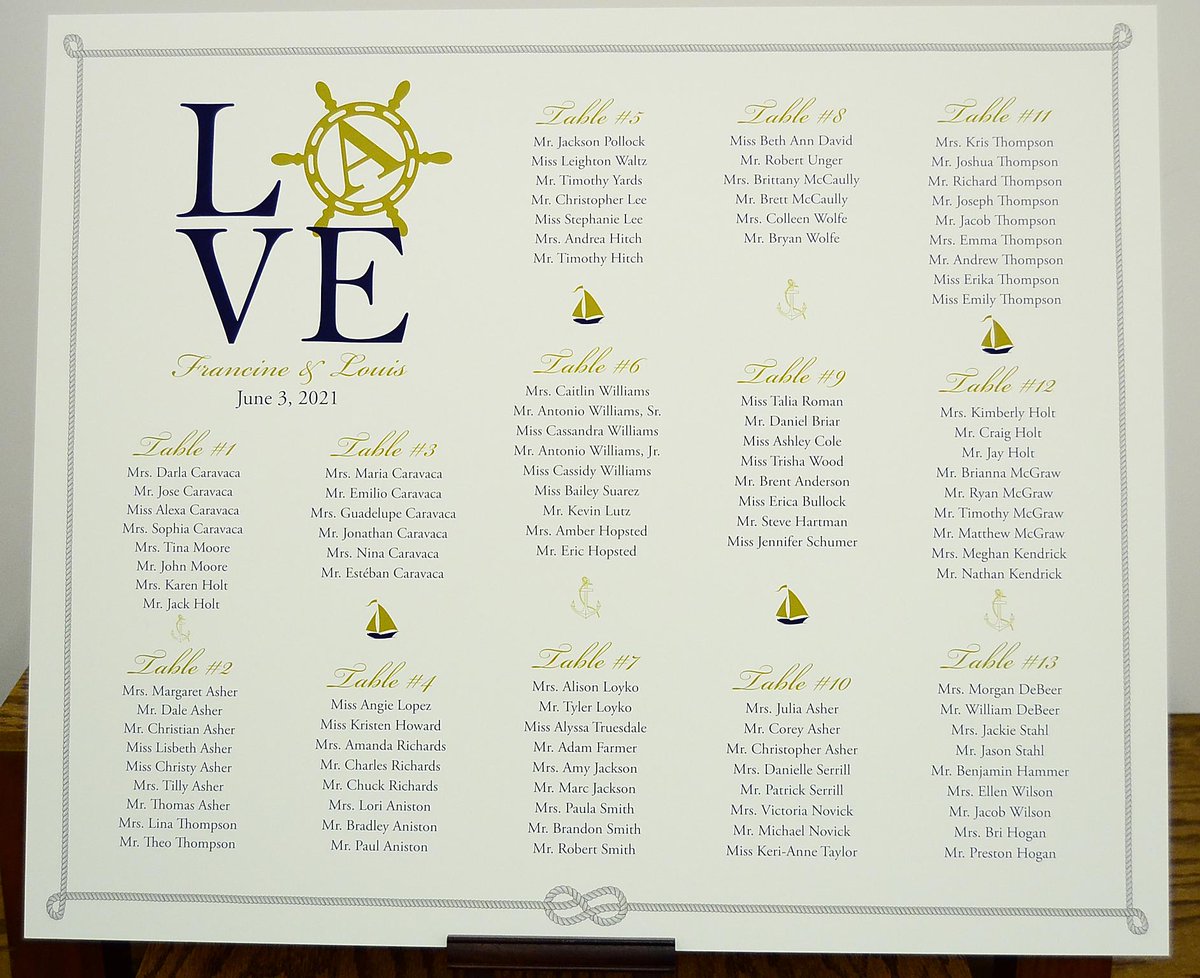 L A
VE
Francine & Louis
June 3, 2021
Table #1
Mrs. Darla Caravaca
Mr. Jose Caravaca
Miss Alexa Caravaca
Mrs. Sophia Caravaca
Mrs. Tina Moore
Mr. John Moore
Mrs. Karen Holt
Mr. Jack Holt
Table #2
Mrs. Margaret Asher
Mr. Dale Asher
Mr. Christian Asher
Miss Lisbeth Asher
Miss Christy Asher
Mrs. Tilly Asher
Mr. Thomas Asher
Mrs. Lina Thompson
Mr. Theo Thompson
Table #3
Mrs. Maria Caravaca
Mr. Emilio Caravaca
Mrs. Guadelupe Caravaca
Mr. Jonathan Caravaca
Mrs. Nina Caravaca
Mr. Estéban Caravaca
Table #4
Miss Angie Lopez
Miss Kristen Howard
Mrs. Amanda Richards
Mr. Charles Richards
Mr. Chuck Richards
Mrs. Lori Aniston
Mr. Bradley Aniston
Mr. Paul Aniston
Table #5
Mr. Jackson Pollock
Miss Leighton Waltz
Mr. Timothy Yards
Mr. Christopher Lee
Miss Stephanie Lee
Mrs. Andrea Hitch
Mr. Timothy Hitch
Table #6
Mrs. Caitlin Williams
Mr. Antonio Williams, Sr.
Miss Cassandra Williams
Mr. Antonio Williams, Jr.
Miss Cassidy Williams
Miss Bailey Suarez
Mr. Kevin Lutz
Mrs. Amber Hopsted
Mr. Eric Hopsted
Table #7
Mrs. Alison Loyko
Mr. Tyler Loyko
Miss Alyssa Truesdale
Mr. Adam Farmer
Mrs. Amy Jackson
Mr. Marc Jackson
Mrs. Paula Smith
Mr. Brandon Smith
Mr. Robert Smith
Table #8
Miss Beth Ann David
Mr. Robert Unger
Mrs. Brittany McCaully
Mr. Brett McCaully
Mrs. Colleen Wolfe
Mr. Bryan Wolfe
Table #9
Miss Talia Roman
Mr. Daniel Briar
Miss Ashley Cole
Miss Trisha Wood
Mr. Brent Anderson
Miss Erica Bullock
Mr. Steve Hartman
Miss Jennifer Schumer
Table #10
Mrs. Julia Asher
Mr. Corey Asher
Mr. Christopher Asher
Mrs. Danielle Serrill
Mr. Patrick Serrill
Mrs. Victoria Novick
Mr. Michael Novick
Miss Keri-Anne Taylor
Table #11
Mrs. Kris Thompson
Mr. Joshua Thompson
Mr. Richard Thompson
Mr. Joseph Thompson
Mr. Jacob Thompson
Mrs. Emma Thompson
Mr. Andrew Thompson
Miss Erika Thompson
Miss Emily Thompson
Table #12
Mrs. Kimberly Holt
Mr. Craig Holt
Mr. Jay Holt
Mr. Brianna McGraw
Mr. Ryan McGraw
Mr. Timothy McGraw
Mr. Matthew McGraw
Mrs. Meghan Kendrick
Mr. Nathan Kendrick
Table #13
Mrs. Morgan DeBeer
Mr. William DeBeer
Mrs. Jackie Stahl
Mr. Jason Stahl
Mr. Benjamin Hammer
Mrs. Ellen Wilson
Mr. Jacob Wilson
Mrs. Bri Hogan
Mr. Preston Hogan